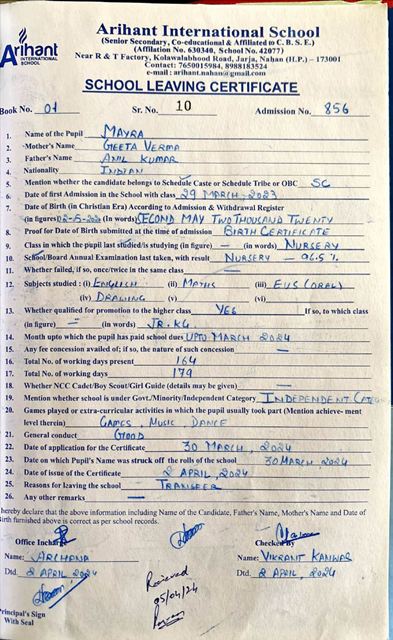 Arihant International School
(Senior Secondary, Co-educational & Affiliated to C. B. S. E.)
(Affiliation No. 630340, School No. 42077)
Near R & T Factory, Kolawalabhood Road, Jarja, Nahan (H.P.) – 173001
Contact: 7650015984, 8988183524
e-mail : arihant.nahan@gmail.com
Arihant
INTERNATIONAL
SCHOOL
SCHOOL LEAVING CERTIFICATE
Book No. 01 Sr. No. 10 Admission No. 856
1. Name of the Pupil MAYRA
2. Mother's Name GEETA VERMA
3. Father's Name ANIL KUMAR
4. Nationality INDIAN
5. Mention whether the candidate belongs to Schedule Caste or Schedule Tribe or OBC SC
6. Date of first Admission in the School with class 29 MARCH, 2023
7. Date of Birth (in Christian Era) According to Admission & Withdrawal Register
(in figures) 02-5-2020 (In words) SECOND MAY TWO THOUSAND TWENTY
8. Proof for Date of Birth submitted at the time of admission BIRTH CERTIFICATE
9. Class in which the pupil last studied/is studying (in figure) – (in words) NURSERY
10. School/Board Annual Examination last taken, with result NURSERY – 96.5 %
11. Whether failed, if so, once/twice in the same class —
12. Subjects studied : (i) ENGLISH (ii) MATHS (iii) EVS (ORAL)
(iv) DRAWING (v) (vi)
13. Whether qualified for promotion to the higher class YES If so, to which class
(in figure) – (in words) JR. KG
14. Month upto which the pupil has paid school dues UPTO MARCH 2024
15. Any fee concession availed of; if so, the nature of such concession —
16. Total No. of working days present 164
17. Total No. of working days 179
18. Whether NCC Cadet/Boy Scout/Girl Guide (details may be given) —
19. Mention whether school is under Govt./Minority/Independent Category INDEPENDENT
20. Games played or extra-curricular activities in which the pupil usually took part (Mention achieve- ment
level therein) GAMES, MUSIC, DANCE
21. General conduct GOOD
22. Date of application for the Certificate 30 MARCH, 2024
23. Date on which Pupil's Name was struck off the rolls of the school 30 MARCH, 2024
24. Date of issue of the Certificate 2 APRIL, 2024
25. Reasons for leaving the school TRANSFER
26. Any other remarks —
hereby declare that the above information including Name of the Candidate, Father's Name, Mother's Name and Date of
Birth furnished above is correct as per school records.
Office Incharge Checked By
Name: ARCHANA Name: VIKRANT KANWAR
Dtd. 2 APRIL, 2024 Dtd. 2 APRIL, 2024
Received
05/04/24
Principal's Sign
With Seal